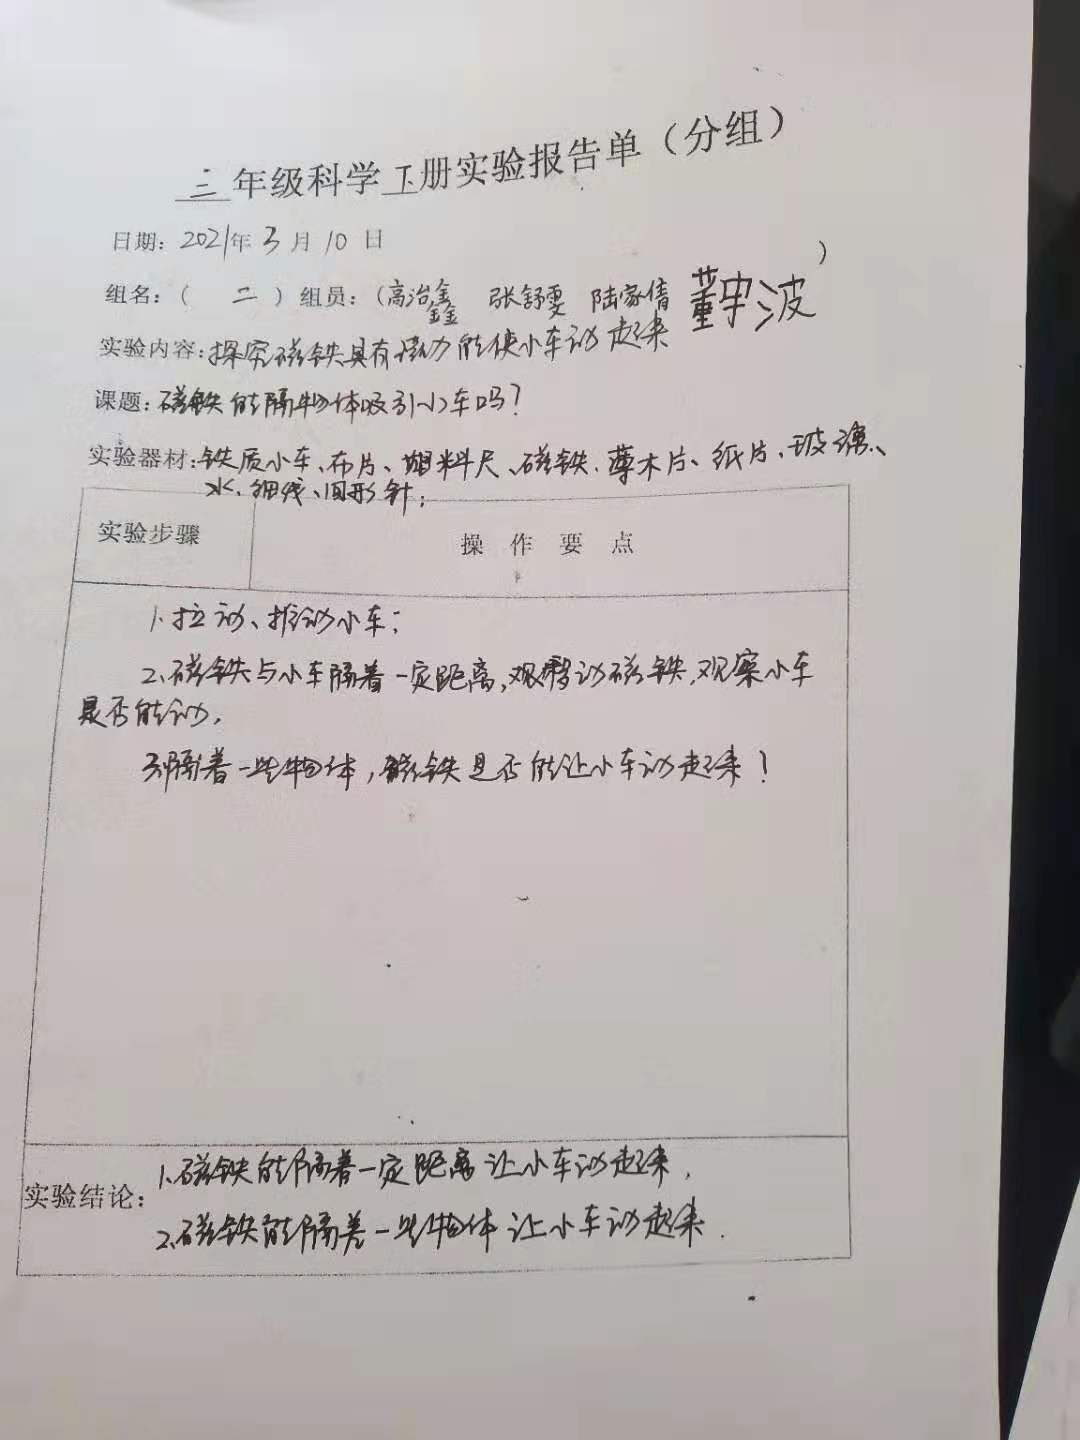 三年级科学下册实验报告单（分组）
日期：2021年3月10日
组名：（ 二 ）组员：（高治鑫 张舒雯 陆家倩 董宇波）
实验内容：探究磁铁具有磁力能使小车动起来
课题：磁铁能隔物体吸引小车吗？
实验器材：铁质小车、布片、塑料尺、磁铁、薄木片、纸片、玻璃、
水、细线、回形针；
实验步骤 操作要点
1.拉动、推动小车；
2.磁铁与小车隔着一定距离，移动磁铁，观察小车
是否能动。
3.隔着一些物体，磁铁是否能让小车动起来？
实验结论：1.磁铁能隔着一定距离让小车动起来.
2.磁铁能隔着一些物体让小车动起来.